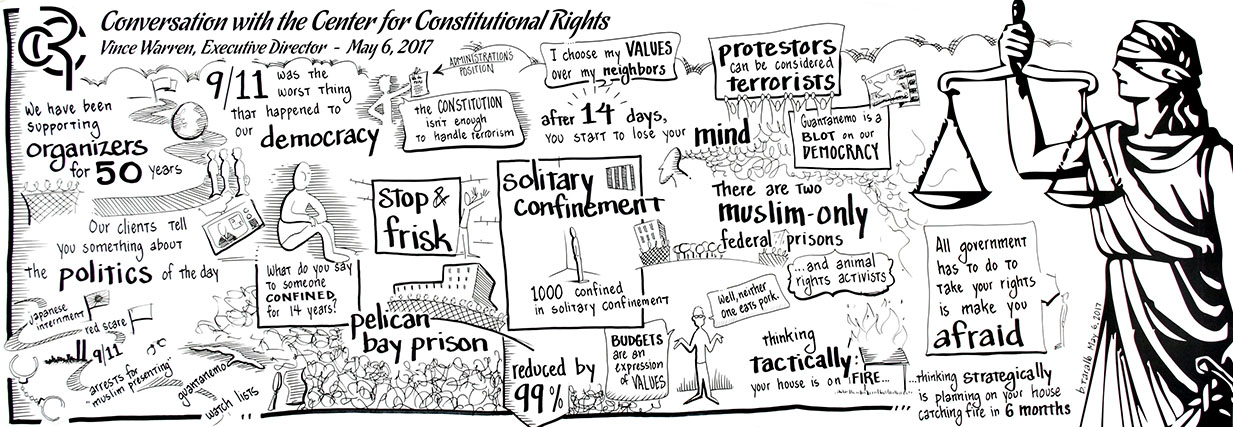 CCR
Conversation with the Center for Constitutional Rights
Vince Warren, Executive Director - May 6, 2017
We have been
supporting
organizers
for 50 years
9/11 was the
worst thing
that happened to
our democracy
ADMINISTRATION'S
POSITION
the CONSTITUTION
isn't enough
to handle terrorism
I choose my VALUES
over my neighbors
after 14 days,
you start to lose your mind
protestors
can be considered
terrorists
Guantanemo is a
BLOT on our
DEMOCRACY
Our clients tell
you something about
the politics of the day
Japanese
internment
red scare
9/11
arrests for
"muslim presenting"
guantanemo
watch lists
What do you say
to someone
CONFINED,
for 14 years?
Stop &
frisk
pelican
bay prison
solitary
confinement
1000 confined
in solitary confinement
reduced by
99%
There are two
muslim-only
federal prisons
...and animal
rights activists
Well, neither
one eats pork.
BUDGETS
are an
expression
of VALUES
thinking
tactically:
your house is on FIRE...
...thinking strategically
is planning on your house
catching fire in 6 months
All government
has to do to
take your rights
is make you
afraid
b. taralb May 6, 2017